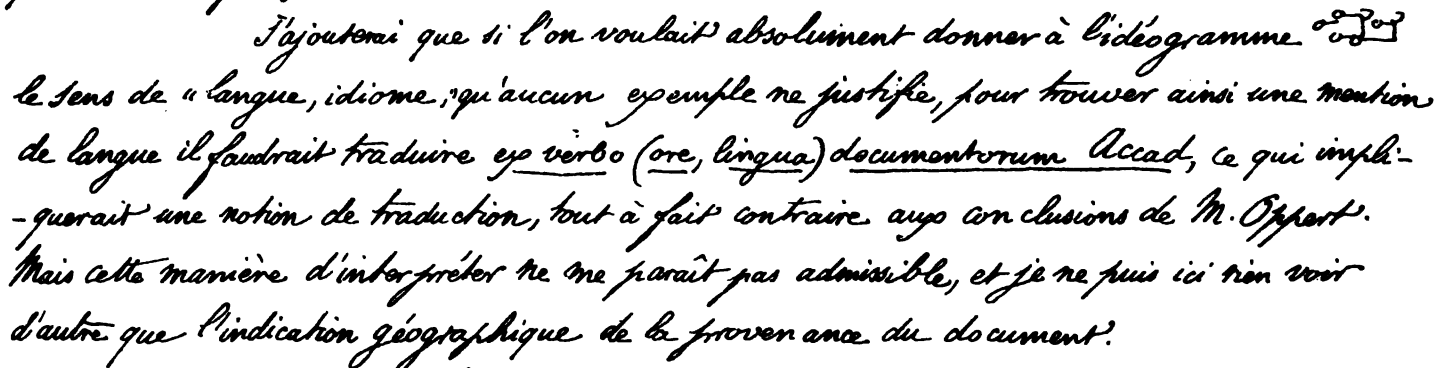 J'ajouterai que si l'on voulait absolument donner à l'idéogramme
le sens de « langue, idiome, » qu'aucun exemple ne justifie, pour trouver ainsi une mention
de langue il faudrait traduire ex verbo (ore, lingua) documentorum Accad, ce qui impli-
-querait une notion de traduction, tout à fait contraire aux conclusions de M. Oppert.
Mais cette manière d'interpréter ne me paraît pas admissible, et je ne puis ici rien voir
d'autre que l'indication géographique de la provenance du document.